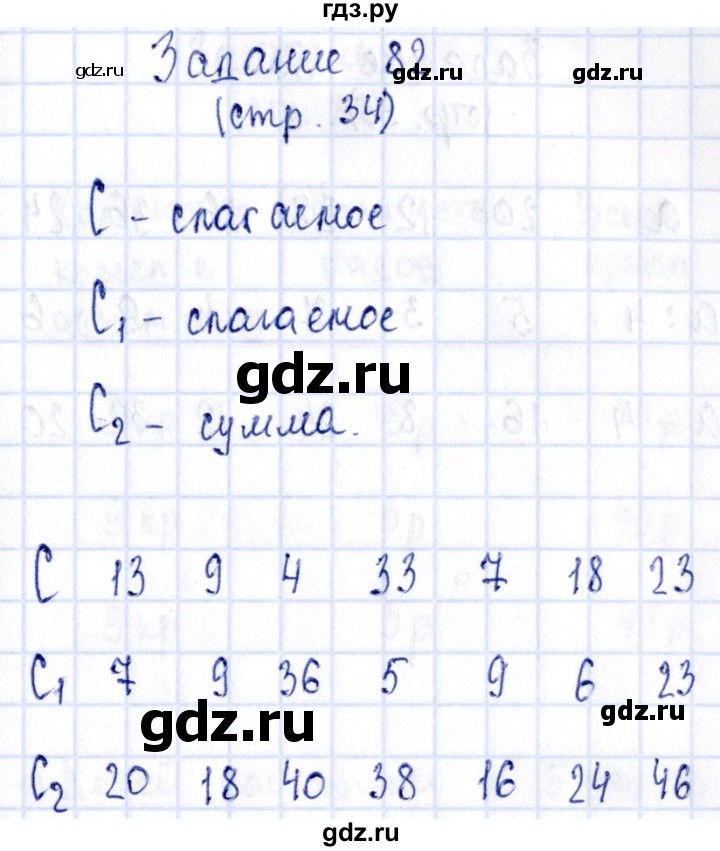 гдз.ру
Задание 82
gdz.ru gdz.ru
(стр. 34)
С - слагаемое
С1 - слагаемое
gdz.ru
С2 - сумма.
С 13 9 4 33 7 18 23
С1 7 9 36 5 9 6 23
gdz.ru gdz.ru
С2 20 18 40 38 16 24 46
gdz.ru